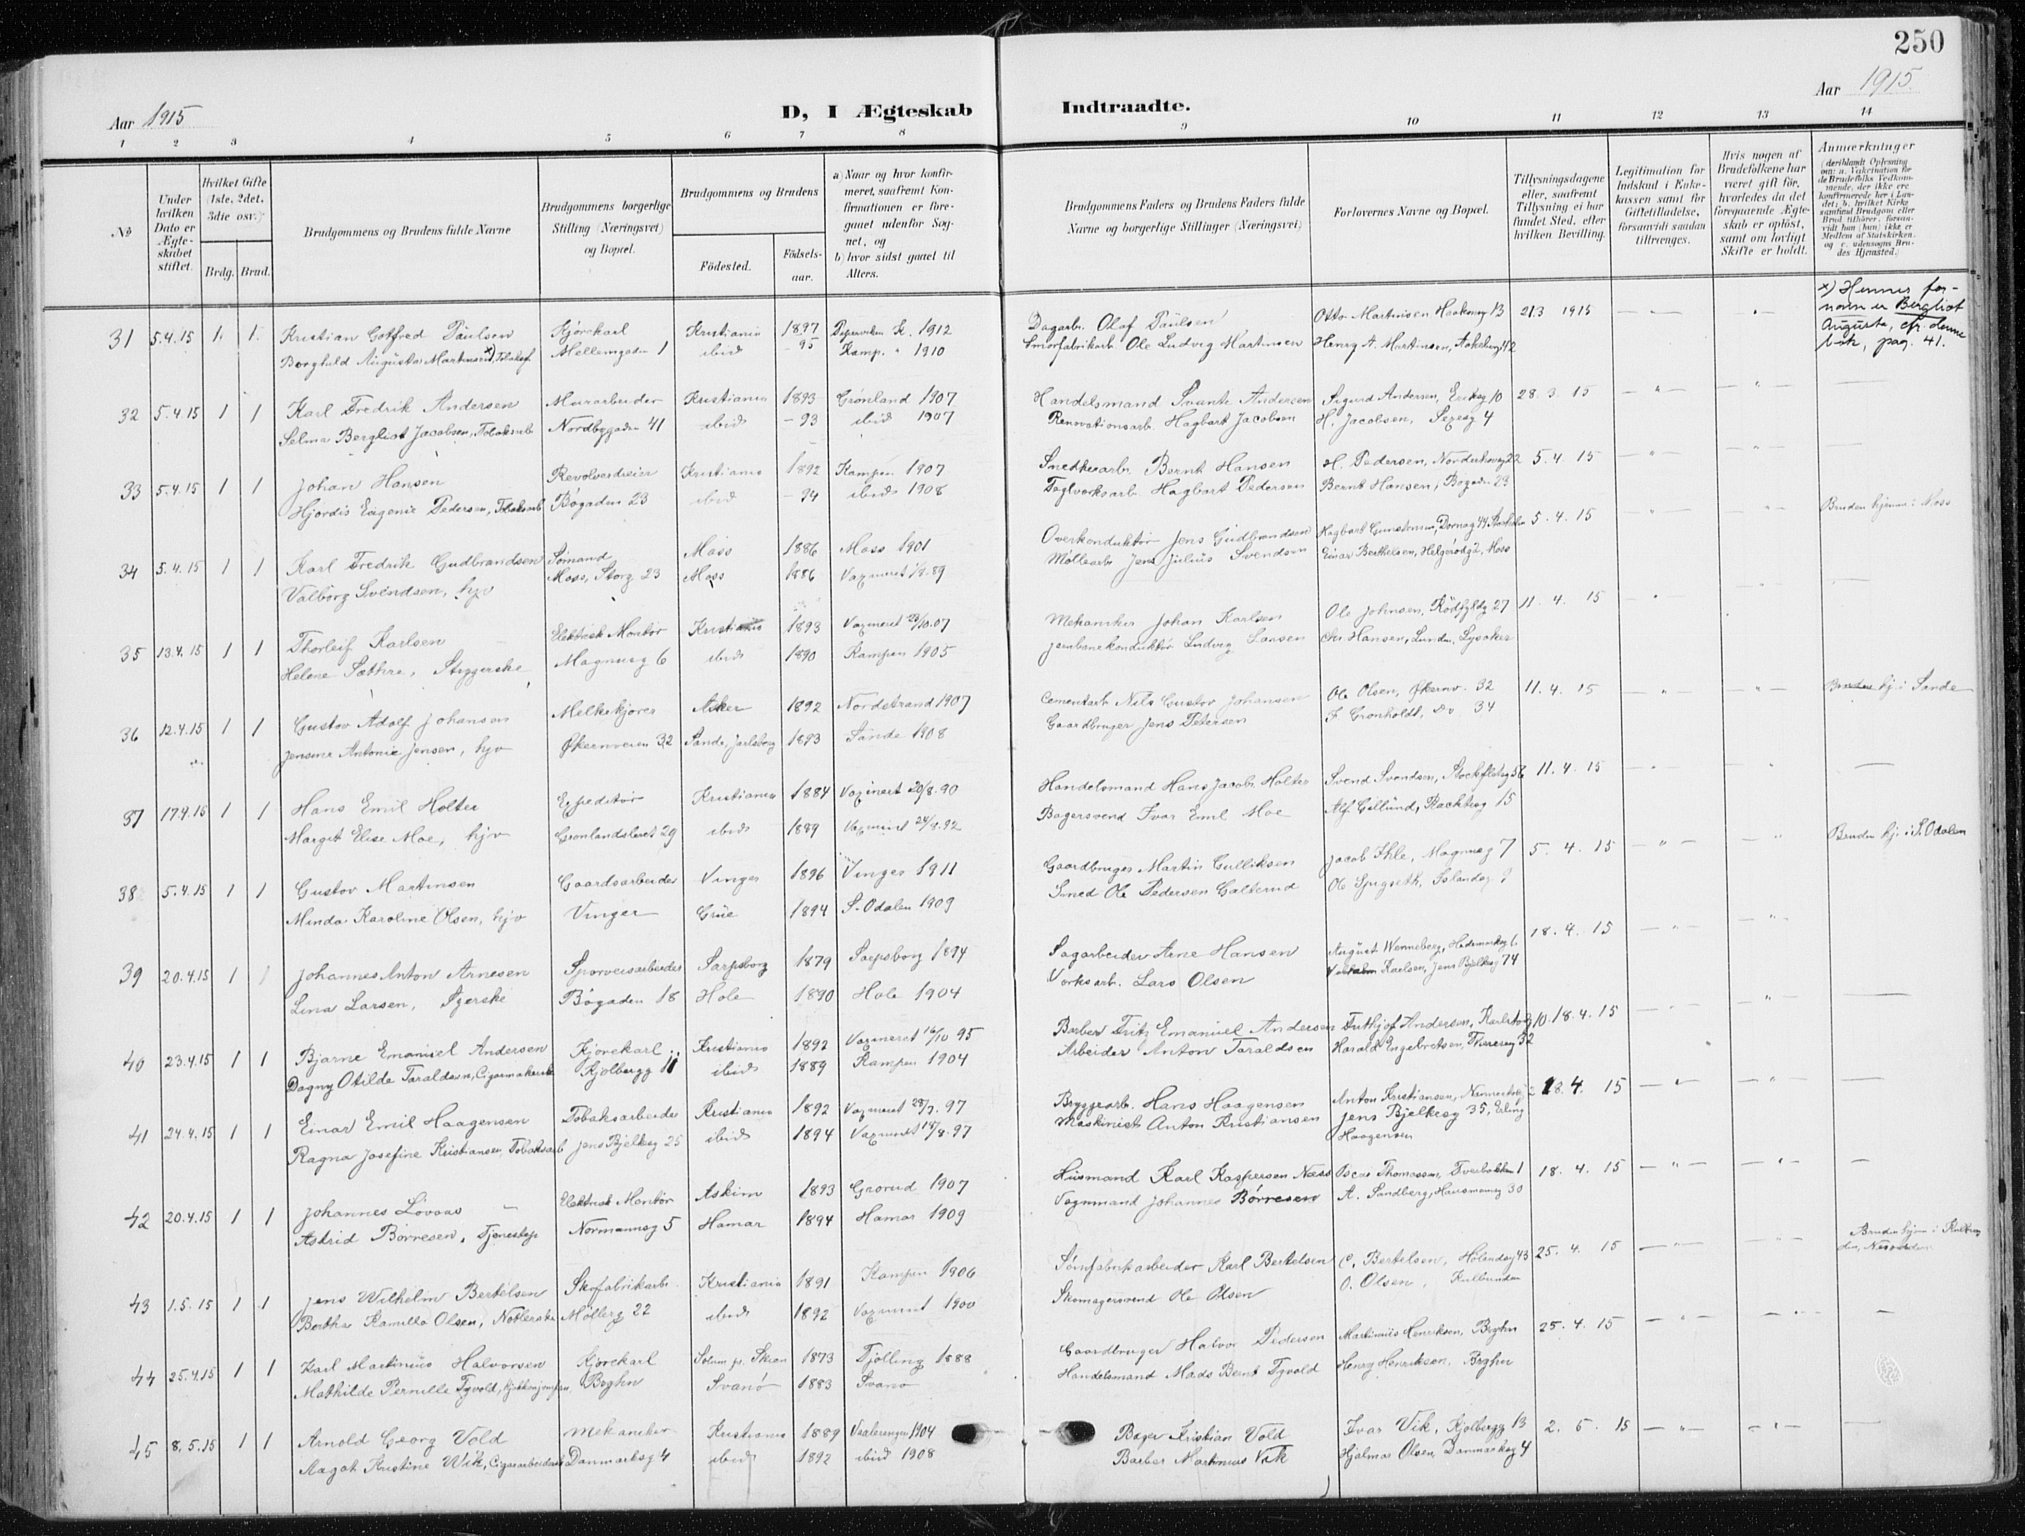 250
Aar 1915
D, I Ægteskab Indtraadte.
Aar 1915.
1 2 3 4 5 6 7 8 9 10 11 12 13 14
No
Under hvilken Dato er Ægteskabet stiftet.
Hvilket Gifte (1ste, 2det, 3die osv.)
Brdg. Brud.
Brudgommens og Brudens fulde Navne
Brudgommens borgerlige Stilling (Næringsvei) og Bopæl.
Brudgommens og Brudens
Fødested. Fødselsaar.
a) Naar og hvor konfirmeret, saafremt Konfirmationen er foregaaet udenfor Sognet, og
b) hvor sidst gaaet til Alters.
Brudgommens Faders og Brudens Faders fulde Navne og borgerlige Stillinger (Næringsvei)
Forlovernes Navne og Bopæl.
Tillysningsdagene eller, saafremt Tillysning ei har fundet Sted, efter hvilken Bevilling.
Legitimation for Indskud i Enkekassen samt for Giftetilladelse, forsaavidt saadan tiltrænges.
Hvis nogen af Brudefolkene har været gift før, hvorledes da det foregaaende Ægteskab er opløst, samt om lovligt Skifte er holdt.
Anmærkninger
(deriblandt Oplysning om: a. Vakcination for de Brudefolks Vedkommende, der ikke ere konfirmerede her i Landet; b. hvilket Kirkesamfund Brudgom eller Brud tilhører, forsaavidt han (hun) ikke er Medlem af Statskirken, og c. udensogns Brudes Hjemsted.)
31 5.4.15 1. 1. Kristian Gotfred Paulsen Kjørekarl Kristiania 1897 K. 1912 Dagarb. Olaf Paulsen Otto Martinsen 13 21 3 1915
Borghild Augusta Martinsen x), Mellemgaden 1 ibid - 95 Kamp. " 1910 Smørfabrikarb. Ole Ludvig Martinsen Henry A. Martinsen, Aakebergv 12
x) Hennes fornavn er Bergliot Augusta, cfr. denne bok, pag. 41.
32 5.4.15 1 1 Karl Fredrik Andersen Murarbeider Kristiania 1893 Grønland 1907 Handelsmand Svante Andersen Sigurd Andersen, Eriksg 10 28. 3. 15
Selma Bergliot Jacobsen, Tobaksarb Nordbygaden 41 ibid - 93 ibid 1907 Renovationsarb. Hagbart Jacobsen H. Jacobsen, 4
33 5.4.15 1 1 Johan Hansen Revolverdreier Kristiania 1892 Kampen 1907 Snedkerarb. Bernt Hansen H. Pedersen, 22 5. 4. 15
Hjørdis Eugenie Pedersen, Tobaksarb Bøgaden 23 ibid - 94 ibid 1908 Teglverksarb. Hagbart Pedersen Bernt Hansen, Bøgaden 23
34 5.4.15 1 1 Karl Fredrik Gudbrandsen Sømand Moss 1886 Moss 1901 Overkonduktør Jens Gudbrandsen 5. 4. 15 Bruden hjemme i Moss
Valborg Svendsen, hjv Moss, Storg 23 Moss 1886 Vaxineret 1/8.89 Møllearb Jens Julius Svendsen Einar Berthelsen, Moss
35 13.4.15 1 1 Thorleif Karlsen Elektrisk Montør Kristiania 1893 Vaxineret 23/10.07 Mekaniker Johan Karlsen Ole Johnsen, Rødfyldg 27 11. 4. 15
Helene Sæthre, Strygerske Magnusg 6 ibid 1890 Kampen 1905 Jernbanekonduktør Ludvig Larsen Chr Hansen, Lunden, Lysaker
36 12.4.15 1 1 Gustav Adolf Johansen Melkekjører Asker 1892 Nordstrand 1907 Cementarb Nils Gustav Johansen Ole Olsen, Økernv. 32 11. 4. 15 Bruden hj. i Sande
Jensine Antonie Jensen, hjv Økernveien 32 Sande, Jarlsberg 1893 Sande 1908 Gaardbruger Jens Petersen F. Gronholdt, do 34
37 17.4.15 1 1 Hans Emil Holter Expeditør Kristiania 1884 Vaxinert 20/8.90 Handelsmand Hans Jacob Holter Svend Svendsen, Stockfletsg 56 11. 4. 15
Margit Elise Moe, hjv Grønlandsleret 29 ibid 1889 Vaxineret 24/8.92 Bagersvend Ivar Emil Moe Alf Gillund, 15
38 5.4.15 1 1 Gustav Martinsen Gaardsarbeider Vinger 1896 Vinger 1911 Gaardbruger Martin Gulliksen Jacob Ihle, Magnusg 7 5. 4. 15 Bruden hj. i S. Odalen
Minda Karoline Olsen, hjv Vinger Grue 1894 S. Odalen 1909 Smed Ole Pedersen Galterud Ole
39 20.4.15 1 1 Johannes Anton Arnesen Sporveisarbeider Sarpsborg 1879 Sarpsborg 1894 Sagarbeider Arne Hansen August Wenneberg, Hedemarksg 6 18. 4. 15
Lina Larsen, Bøgaden 18 Hole 1890 Hole 1904 Verksarb. Lars Olsen Karlsen, Jens Bjelkesg 74
40 23.4.15 1 1 Bjarne Emanuel Andersen Kjørekarl Kristiania 1892 Vaxineret 16/10 95 Barber Fritz Emanuel Andersen Fritjof Andersen, Karlstadg 10. 18. 4. 15
Dagny Otilde Taraldsen, Cigarmakerske Kjølbergg 11 ibid 1889 Kampen 1904 Arbeider Anton Taraldsen Harald Engebretsen, Theresesg 32
41 24.4.15 1 1 Einar Emil Haagensen Tobaksarbeider Kristiania 1892 Vaxineret 28/7. 97 Bryggearb. Hans Haagensen Anton Kristiansen, 2 18. 4. 15
Ragna Josefine Kristiansen, Tobaksarb Jens Bjelkesg 25 ibid 1894 Vaxineret 18/8.97 Maskinist Anton Kristiansen Jens Bjelkesg 35, Erling Haagensen
42 20.4.15 1 1 Johannes Lövaas Elektrisk Montør Askim 1893 Grorud 1907 Husmand Karl Kaspersen Næss Oscar Thomassen, Tverbakken 1 18. 4. 15
Astrid Børresen, Tjenestep Normannsg 5 Hamar 1894 Hamar 1909 Vognmand Johannes Børresen A. Sandberg, Hausmannsg 30
43 1.5.15 1 1 Jens Wilhelm Bertelsen Skofabrikarb. Kristiania 1891 Kampen 1906 Sømfabrikarbeider Karl Bertelsen C. Bertelsen, Hølandsg 43 25. 4. 15
Bertha Kamilla Olsen, Møllerg 22 ibid 1892 Vaxineret 1900 Skomagersvend Ole Olsen O. Olsen,
44 25.4.15 1 1 Karl Martinius Halvorsen Kjørekarl Solum pr. Skien 1873 Tjølling 1888 Gaardbruger Halvor Pedersen Martinius Henriksen, Brghn 25. 4. 15
Mathilde Pernille Tyvold, Brghn Svanø 1883 Svanø Handelsmand Mads Bernt Tyvold Henry Henriksen, Brghn
45 8.5.15 1 1 Arnold Georg Vold Mekaniker Kristiania 1889 Vaalerengen 1904 Bager Kristian Vold Ivar Vik, Kjølbergg 13 2. 5. 15
Aagot Kristine Wik, Cigararbeiderske Danmarksg 4 ibid 1892 ibid 1908 Barber Martinius Vik Hjalmar Olsen, Danmarksg 4